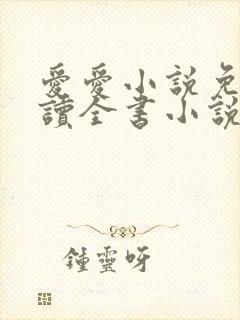 愛愛小說免
讀全書小說
鍾靈呀